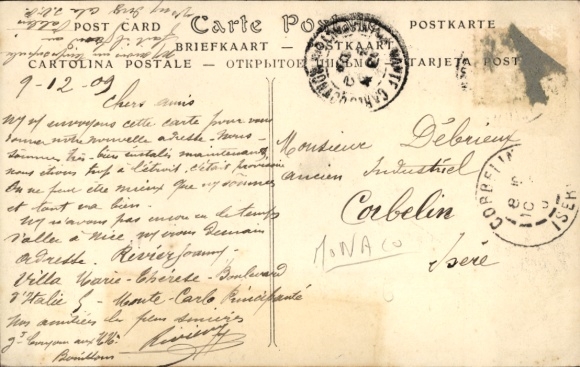 POST CARD
Carte Postale
POSTKARTE
BRIEFKAART — POSTKAART
CARTOLINA POSTALE — ОТКРЫТОЕ ПИСЬМО — TARJETA POSTAL
9-12-09
Chers amis
ns vs envoyons cette carte pour vous
donner notre nouvelle adresse. Nous
sommes très-bien installés maintenant
nous étions trop à l'étroit, c'était provisoire
On ne peut être mieux que ns sommes
et tant va bien.
Ns n'avons pas encore eu de temps
d'aller à Nice, ns irons Demain
adresse. Rivier Joanny
Villa Marie-Thérèse-Boulevard
d'Italie 5 - Monte-Carlo Principauté
nos amitiés les plus sincères
aux
Bouillons
Monsieur Débrieux
ancien Industriel
Corbelin
Isère
MONACO
CORBELIN
ISERE